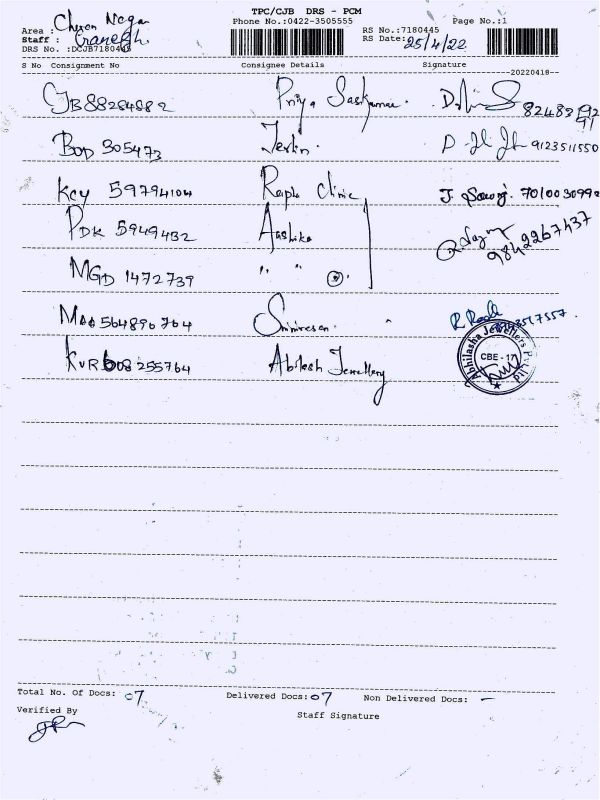 TPC/CJB DRS - PCM
Phone No.:0422-3505555
Page No.:1
Area : Cheran Nagar
Staff : Ganesh
DRS No. :DCJB7180445
RS No.:7180445
RS Date: 25/4/22
S No Consignment No Consignee Details Signature
20220418
CJB 88284882 Priya Saskumar. 82483192
91
BOD 305473 Jerlin. 9123511550
KCY 59794104 Clinic 701003099
PDK 5949432 Aashika 9842267437
MGD 1472739 " "
Maa 564890764 Srinivasan.
KUR 608255764 Abilash Jewellery
Abhilasha Jewellers Pvt Ltd
CBE - 17
Total No. Of Docs: 07 Delivered Docs: 07 Non Delivered Docs: -
Verified By
Staff Signature